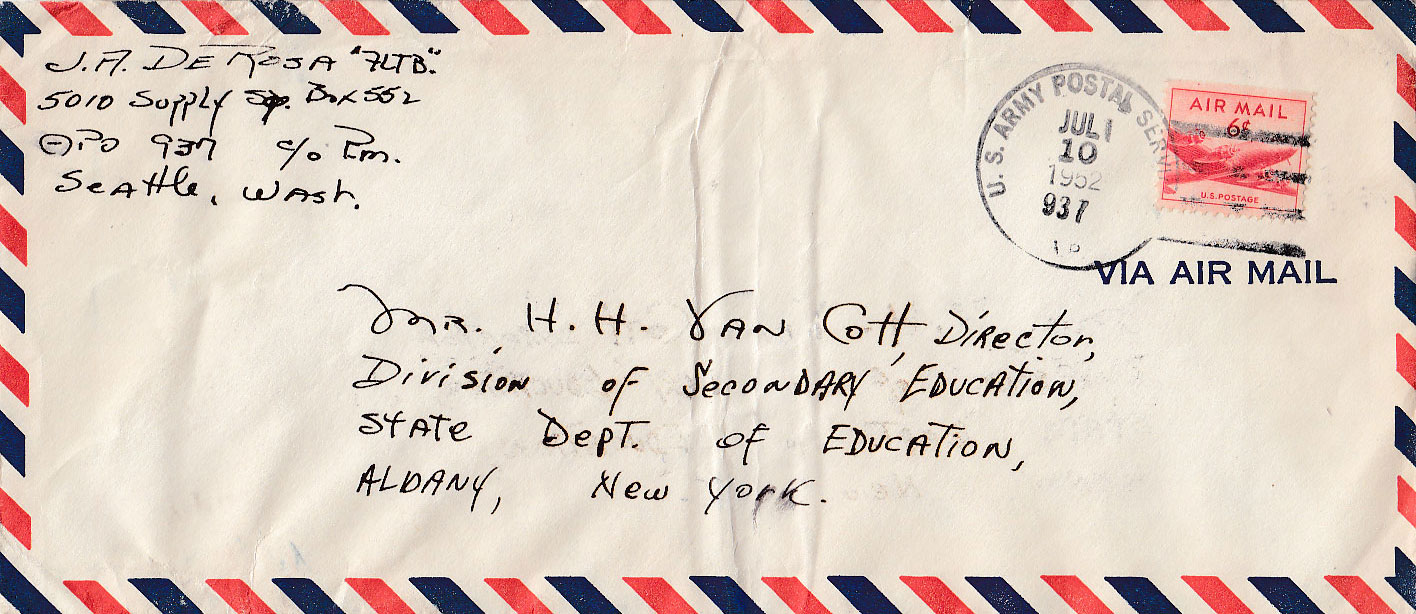 J. A. DE ROSA "7LTB".
5010 Supply Sq. Box 552
APO 937 c/o Pm.
Seattle, Wash.
U. S. ARMY POSTAL SERVI
JUL
10
1952
937
AIR MAIL
6¢
U.S. POSTAGE
VIA AIR MAIL
MR. H. H. VAN Cott, Director,
Division of Secondary Education,
State Dept. of Education,
ALBANY, New York.